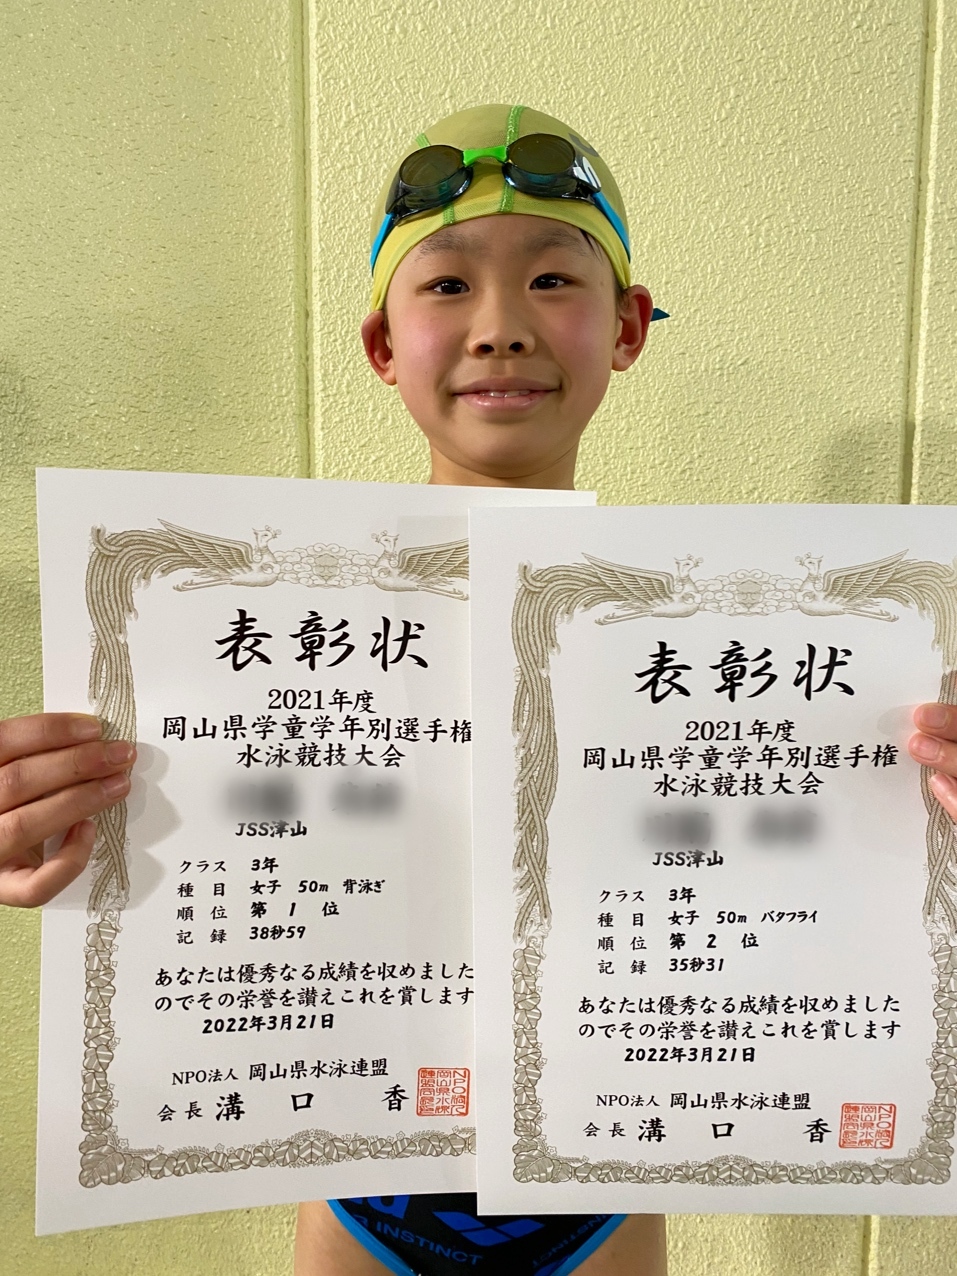 表彰状
2021年度
岡山県学童学年別選手権
水泳競技大会
JSS津山
クラス 3年
種目 女子 50m 背泳ぎ
順位 第 1 位
記録 38秒59
あなたは優秀なる成績を収めました
のでその栄誉を讃えこれを賞します
2022年3月21日
NPO法人 岡山県水泳連盟
会長 溝口 香
表彰状
2021年度
岡山県学童学年別選手権
水泳競技大会
JSS津山
クラス 3年
種目 女子 50m バタフライ
順位 第 2 位
記録 35秒31
あなたは優秀なる成績を収めました
のでその栄誉を讃えこれを賞します
2022年3月21日
NPO法人 岡山県水泳連盟
会長 溝口 香
INSTINCT